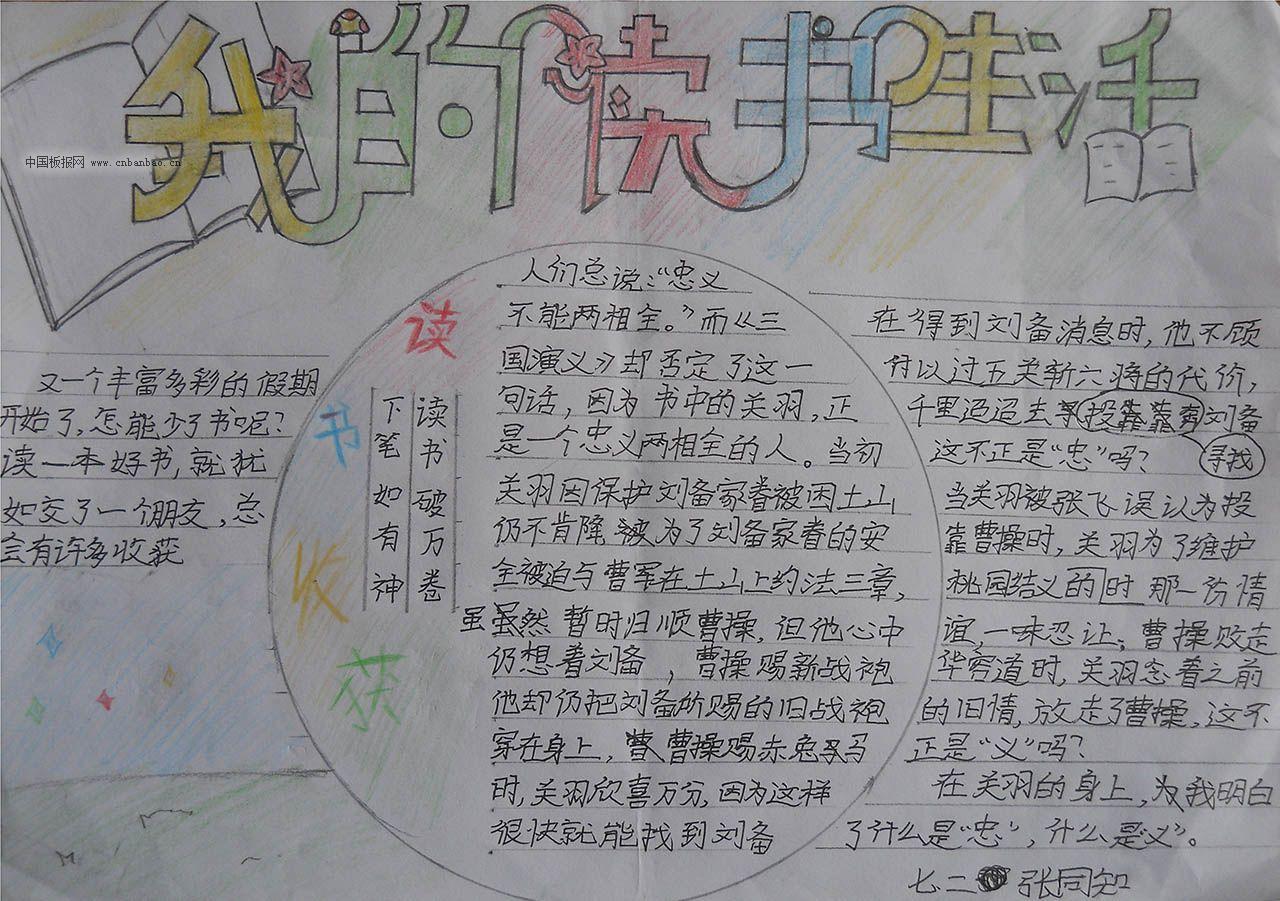 我的读书生活
中国板报网 www.cnbanbao.cn
又一个丰富多彩的假期
开始了,怎能少了书呢?
读一本好书,就犹
如交了一个朋友,总
会有许多收获
读书收获
读书破万卷
下笔如有神
人们总说:“忠义
不能两相全。”而《三
国演义》却否定了这一
句话,因为书中的关羽,正
是一个忠义两相全的人。当初
关羽因保护刘备家眷被困土山
仍不肯降,被为了刘备家眷的安
全被迫与曹军在土山上约法三章,
虽虽然暂时归顺曹操,但他心中
仍想着刘备,曹操赐新战袍
他却仍把刘备所赐的旧战袍
穿在身上,曹操赐赤兔马
时,关羽欣喜万分,因为这样
很快就能找到刘备
在得到刘备消息时,他不顾
付以过五关斩六将的代价,
千里迢迢去投靠靠刘备
寻找
这不正是“忠”吗?
当关羽被张飞误认为投
靠曹操时,关羽为了维护
桃园结义的时那一份情
谊,一味忍让;曹操败走
华容道时,关羽念着之前
的旧情,放走了曹操,这不
正是“义”吗?
在关羽的身上,为我明白
了什么是“忠”,什么是“义”。
七二 张同知